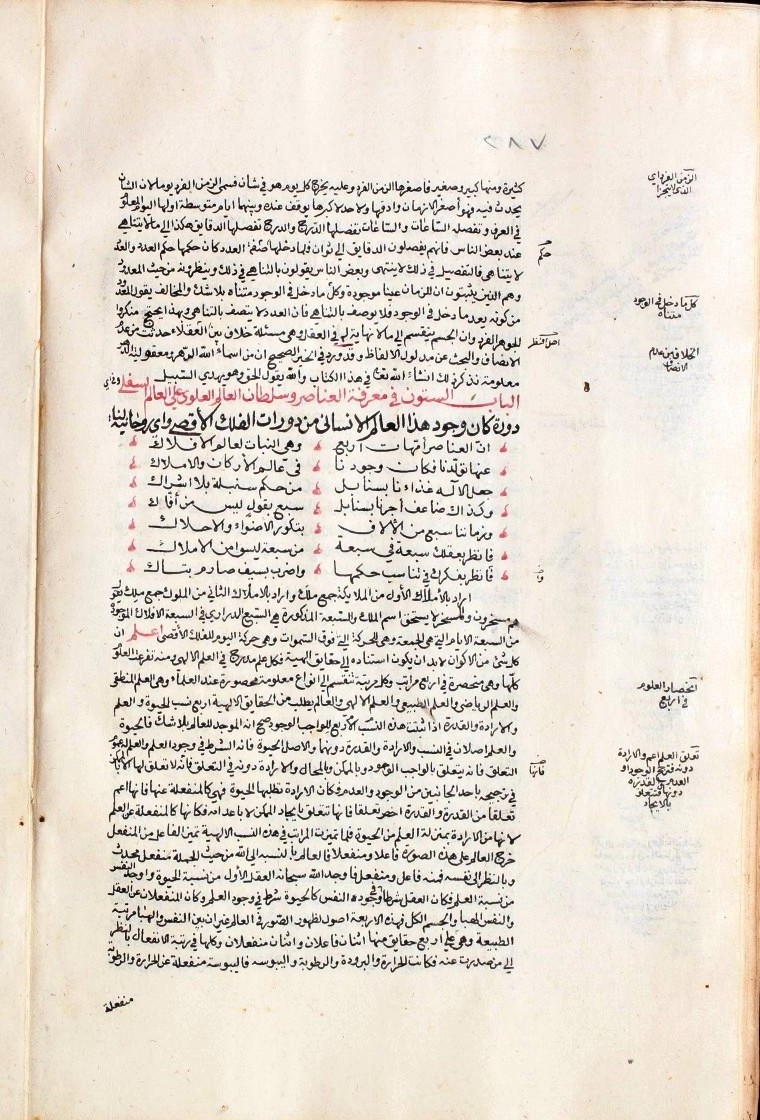 ٧٨٢
كثيرة ومنها كبير وصغير فاصغرها الزمن الفرد وعليه يخرج كل يوم هو فى شان فسمى الزمن الفرد يوما لان الشان
يحدث فيه فهو أصغر الازمان وادقها ولا حد لاكبرها يوقف عنده وبينهما ايام متوسطة اولها اليوم المعلوم
فى العرف وتفصله الساعات والساعات تفصلها الدرج والدرج تفصلها الدقايق هكذا الى ما لا يتناهى
عند بعض الناس فانهم يفصلون الدقايق الى ثوان فلما دخلها حكم العدد كان حكمها حكم العدد والعدد
لا يتناهى فالتفصيل فى ذلك لا ينتهى وبعض الناس يقولون بالتناهى فى ذلك وينظرونه من حيث المعدود
وهم الذين يثبتون ان للزمان عينا موجودة وكل ما دخل فى الوجود متناه بلا شك والمخالف يقول المعدود
من كونه يعد ما دخل فى الوجود فلا يوصف بالتناهى فان العدد لا يتصف بالتناهى وبهذا يحتج منكروا
الجوهر الفرد وان الجسم ينقسم الى ما لا نهاية له فى العقل وهى مسئلة خلاف بين العقلاء حدثت من عدم
الانصاف والبحث عن مدلول الالفاظ وقد ورد فى الخبر الصحيح ان من اسماء الله الدهر ومعقولية الدهر
معلومة نذكر ذلك انشاء الله تعالى فى هذا الكتاب والله يقول الحق وهو يهدى السبيل
الباب الستون فى معرفة العناصر وسلطان العالم العلوى على العالم السفلى وفى اى
دورة كان وجود هذا العالم الانسانى من دورات الفلك الأقصى واى روحانية لنا
ان العناصر أمهات اربع وهى البنات لعالم الافلاك
عنها تولدنا فكان وجودنا فى عالم الأركان والاملاك
جعل الآله غذاءنا بسنابل من حكم سنبلة بلا اشراك
وكذاك ضاعف أجرنا بسنابل سبع بقول ليس من أفاك
وزماننا سبع من الآلاف بتكور الاضواء والاحلاك
فانظر بعقلك سبعة فى سبعة من سبعة ليسوا من الاملاك
فانظر بفكرك فى تناسب حكمها واضرب بسيف صارم بتاك
اراد بالأملاك الأول من الملايكة جمع ملك واراد بالاملاك الثانى من الملوك جمع ملك يقول
هم مسخرون والمسخر لا يستحق اسم الملك والسبعة المذكورة هى السبع الدرارى فى السبعة الافلاك الموجودة
من السبعة الايام التى هى الجمعة وهى الحركة التى فوق السموات وهى حركة اليوم للفلك الأقصى اعلم ان
كل شئ من الأكوان لا بد ان يكون استناده الى حقايق الهية فكل علم مدرج فى العلم الالهى ومنه تفرعت العلوم
كلها وهى منحصرة فى اربع مراتب وكل مرتبة تنقسم الى انواع معلومة محصورة عند العلماء وهى العلم المنطقى
والعلم الرياضى والعلم الطبيعى والعلم الالهى والعالم يطلب من الحقايق الالهية اربع نسب الحيوة والعلم
والارادة والقدرة اذا ثبتت هذه النسب الأربع للواجب الوجود صح انه الموجد للعالم بلا شك فالحيوة
والعلم اصلان فى النسب والارادة والقدرة دونهما والاصل الحيوة فانه الشرط فى وجود العلم والعلم له عموم
التعلق فانه يتعلق بالواجب الوجود وبالممكن وبالمحال والارادة دونه فى التعلق فانه لا تعلق لها الا بالممكن
فى ترجيحه باحد الجانبين من الوجود والعدم فكان الارادة تطلبها الحيوة فهى كالمنفعلة عنها فانها اعم
تعلقا من القدرة والقدرة اخص تعلقا فانها تتعلق بايجاد الممكن لا باعدامه فكانها كالمنفعلة عن العلم
لانها من الارادة بمنزلة العلم من الحيوة فلما تميزت المراتب فى هذه النسب الالهية تميز الفاعل من المنفعل
خرج العالم على هذه الصورة فاعلا ومنفعلا فالعالم بالنسبة الى الله من حيث الجملة منفعل محدث
وبالنظر الى نفسه فمنه فاعل ومنفعل فاوجد الله سبحانه العقل الأول من نسبة الحيوة واوجد النفس
من نسبة العلم فكان العقل شرطا فى وجوده النفس كالحيوة شرط فى وجود العلم وكان المنفعلان عن العقل
والنفس الهبا والجسم الكل فهذه الاربعة اصول لظهور الصور فى العالم غير ان بين النفس والهبا مرتبة
الطبيعة وهى على اربع حقايق منها اثنان فاعلان واثنان منفعلان وكلها فى رتبة الانفعال بالنظر
الى من صدرت عنه فكانت الحرارة والبرودة والرطوبة واليبوسه فاليبوسة منفعلة عن الحرارة والرطوبة
منفعلة
الزمن الفرد اى
الذى لا يتجزا
حكم
كل ما دخل فى الوجود
متناه
الخلاف من عدم
الانصاف
انحصار العلوم
فى اربع
تعلق العلم اعم والارادة
دونه فترجح الوجود او
العدم والقدرة
دونها فتتعلق
بالايجاد
فانها